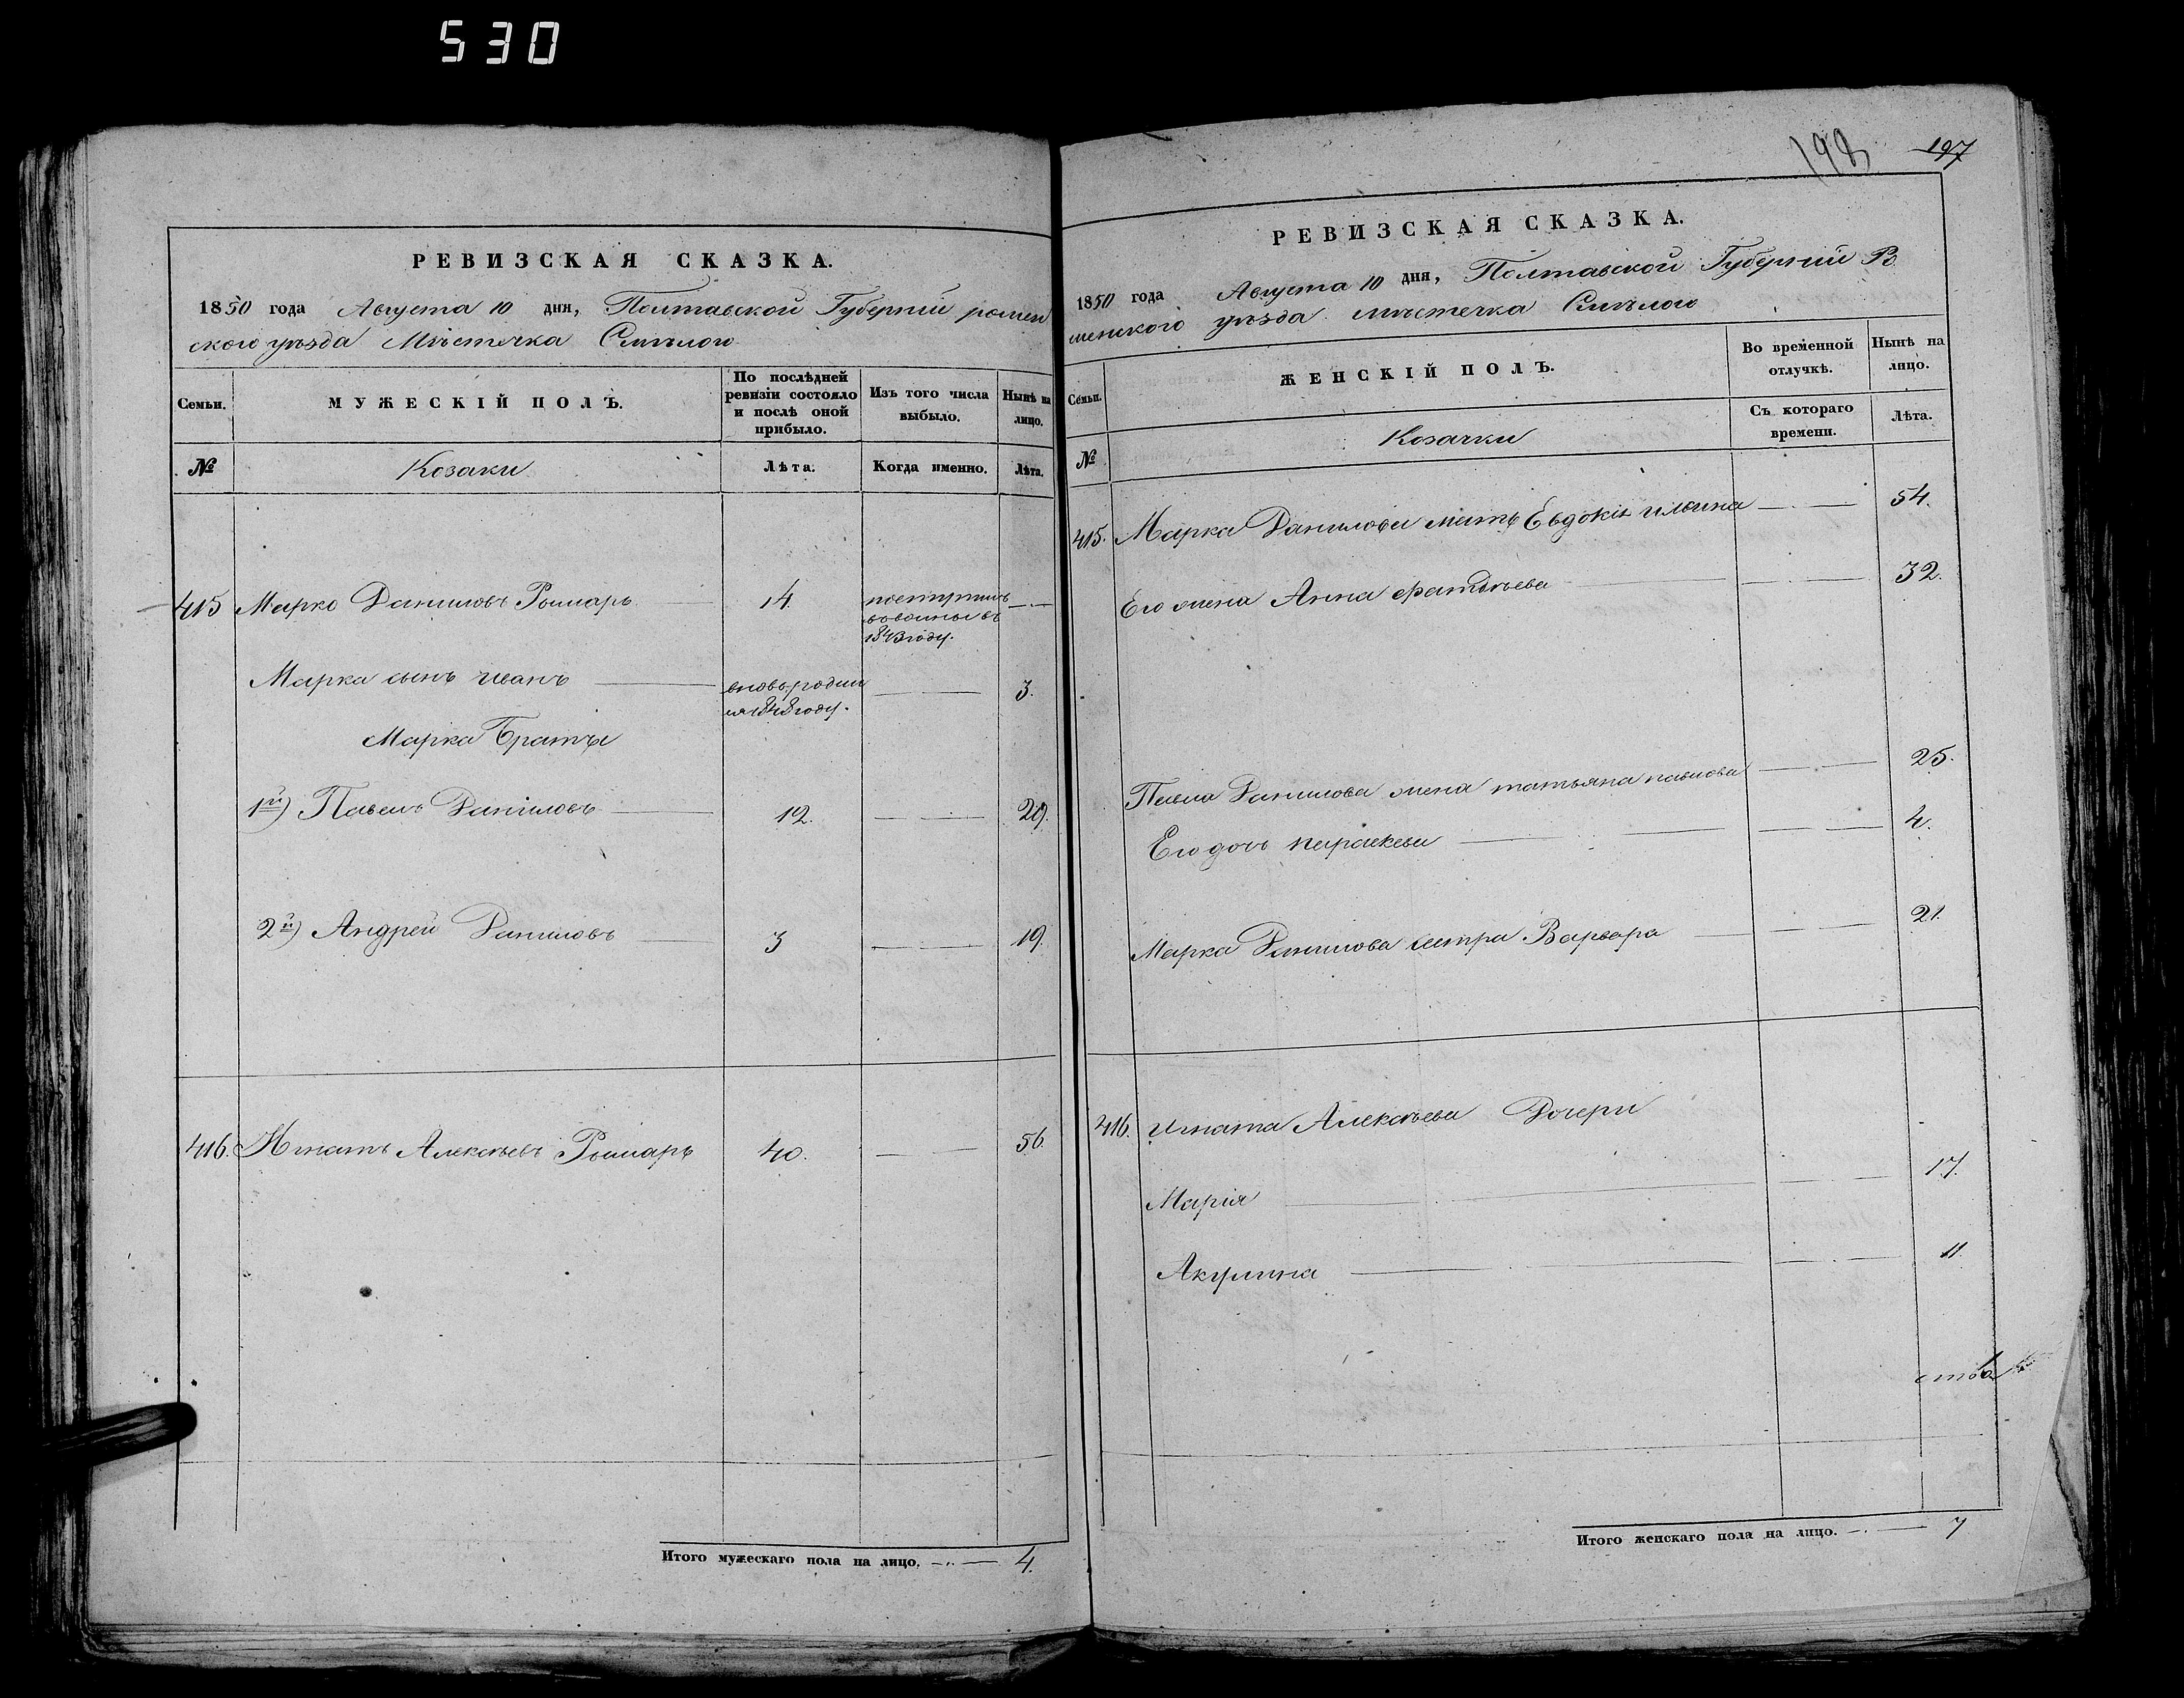 530
РЕВИЗСКАЯ СКАЗКА.
1850 года Августа 10 дня, Полтавской Губерніи ромен
ского уѣзда Мѣстечка Смѣлого
Семьи.
МУЖЕСКІЙ ПОЛЪ.
По послѣдней ревизіи состояло и послѣ оной прибыло.
Изъ того числа выбыло.
Нынѣ на лицо.
№
Козаки
Лѣта.
Когда именно.
Лѣта.
415 Марко Даниловъ Рымарь 14.
1843 году.
Марка сынъ иванъ вновь родил 3.
ся 1848 году.
Марка Братья
1й) Павелъ Даніловъ 12. 29.
2й) Андрей Даниловъ 3 19.
416. Игнатъ Алексѣевъ Рымарь 40. 56.
Итого мужескаго пола на лицо. 4.
198 197
РЕВИЗСКАЯ СКАЗКА.
1850 года Августа 10 дня, Полтавской Губерніи Ро
менского уѣзда мѣстечка Смѣлого
Семьи.
ЖЕНСКІЙ ПОЛЪ.
Во временной отлучкѣ.
Нынѣ на лицо.
№
Козачки
Съ котораго времени.
Лѣта.
415. Марка Данилова мать Евдокія ильина 54.
Его жена Анна 32.
Павла Данилова жена татьяна павлова 25.
Его дочь параскева 4.
Марка Данилова сестра Варвара 21.
416. игната Алексѣева Дочери
Марія 17.
Акулина 11.
Итого женскаго пола на лицо. 7